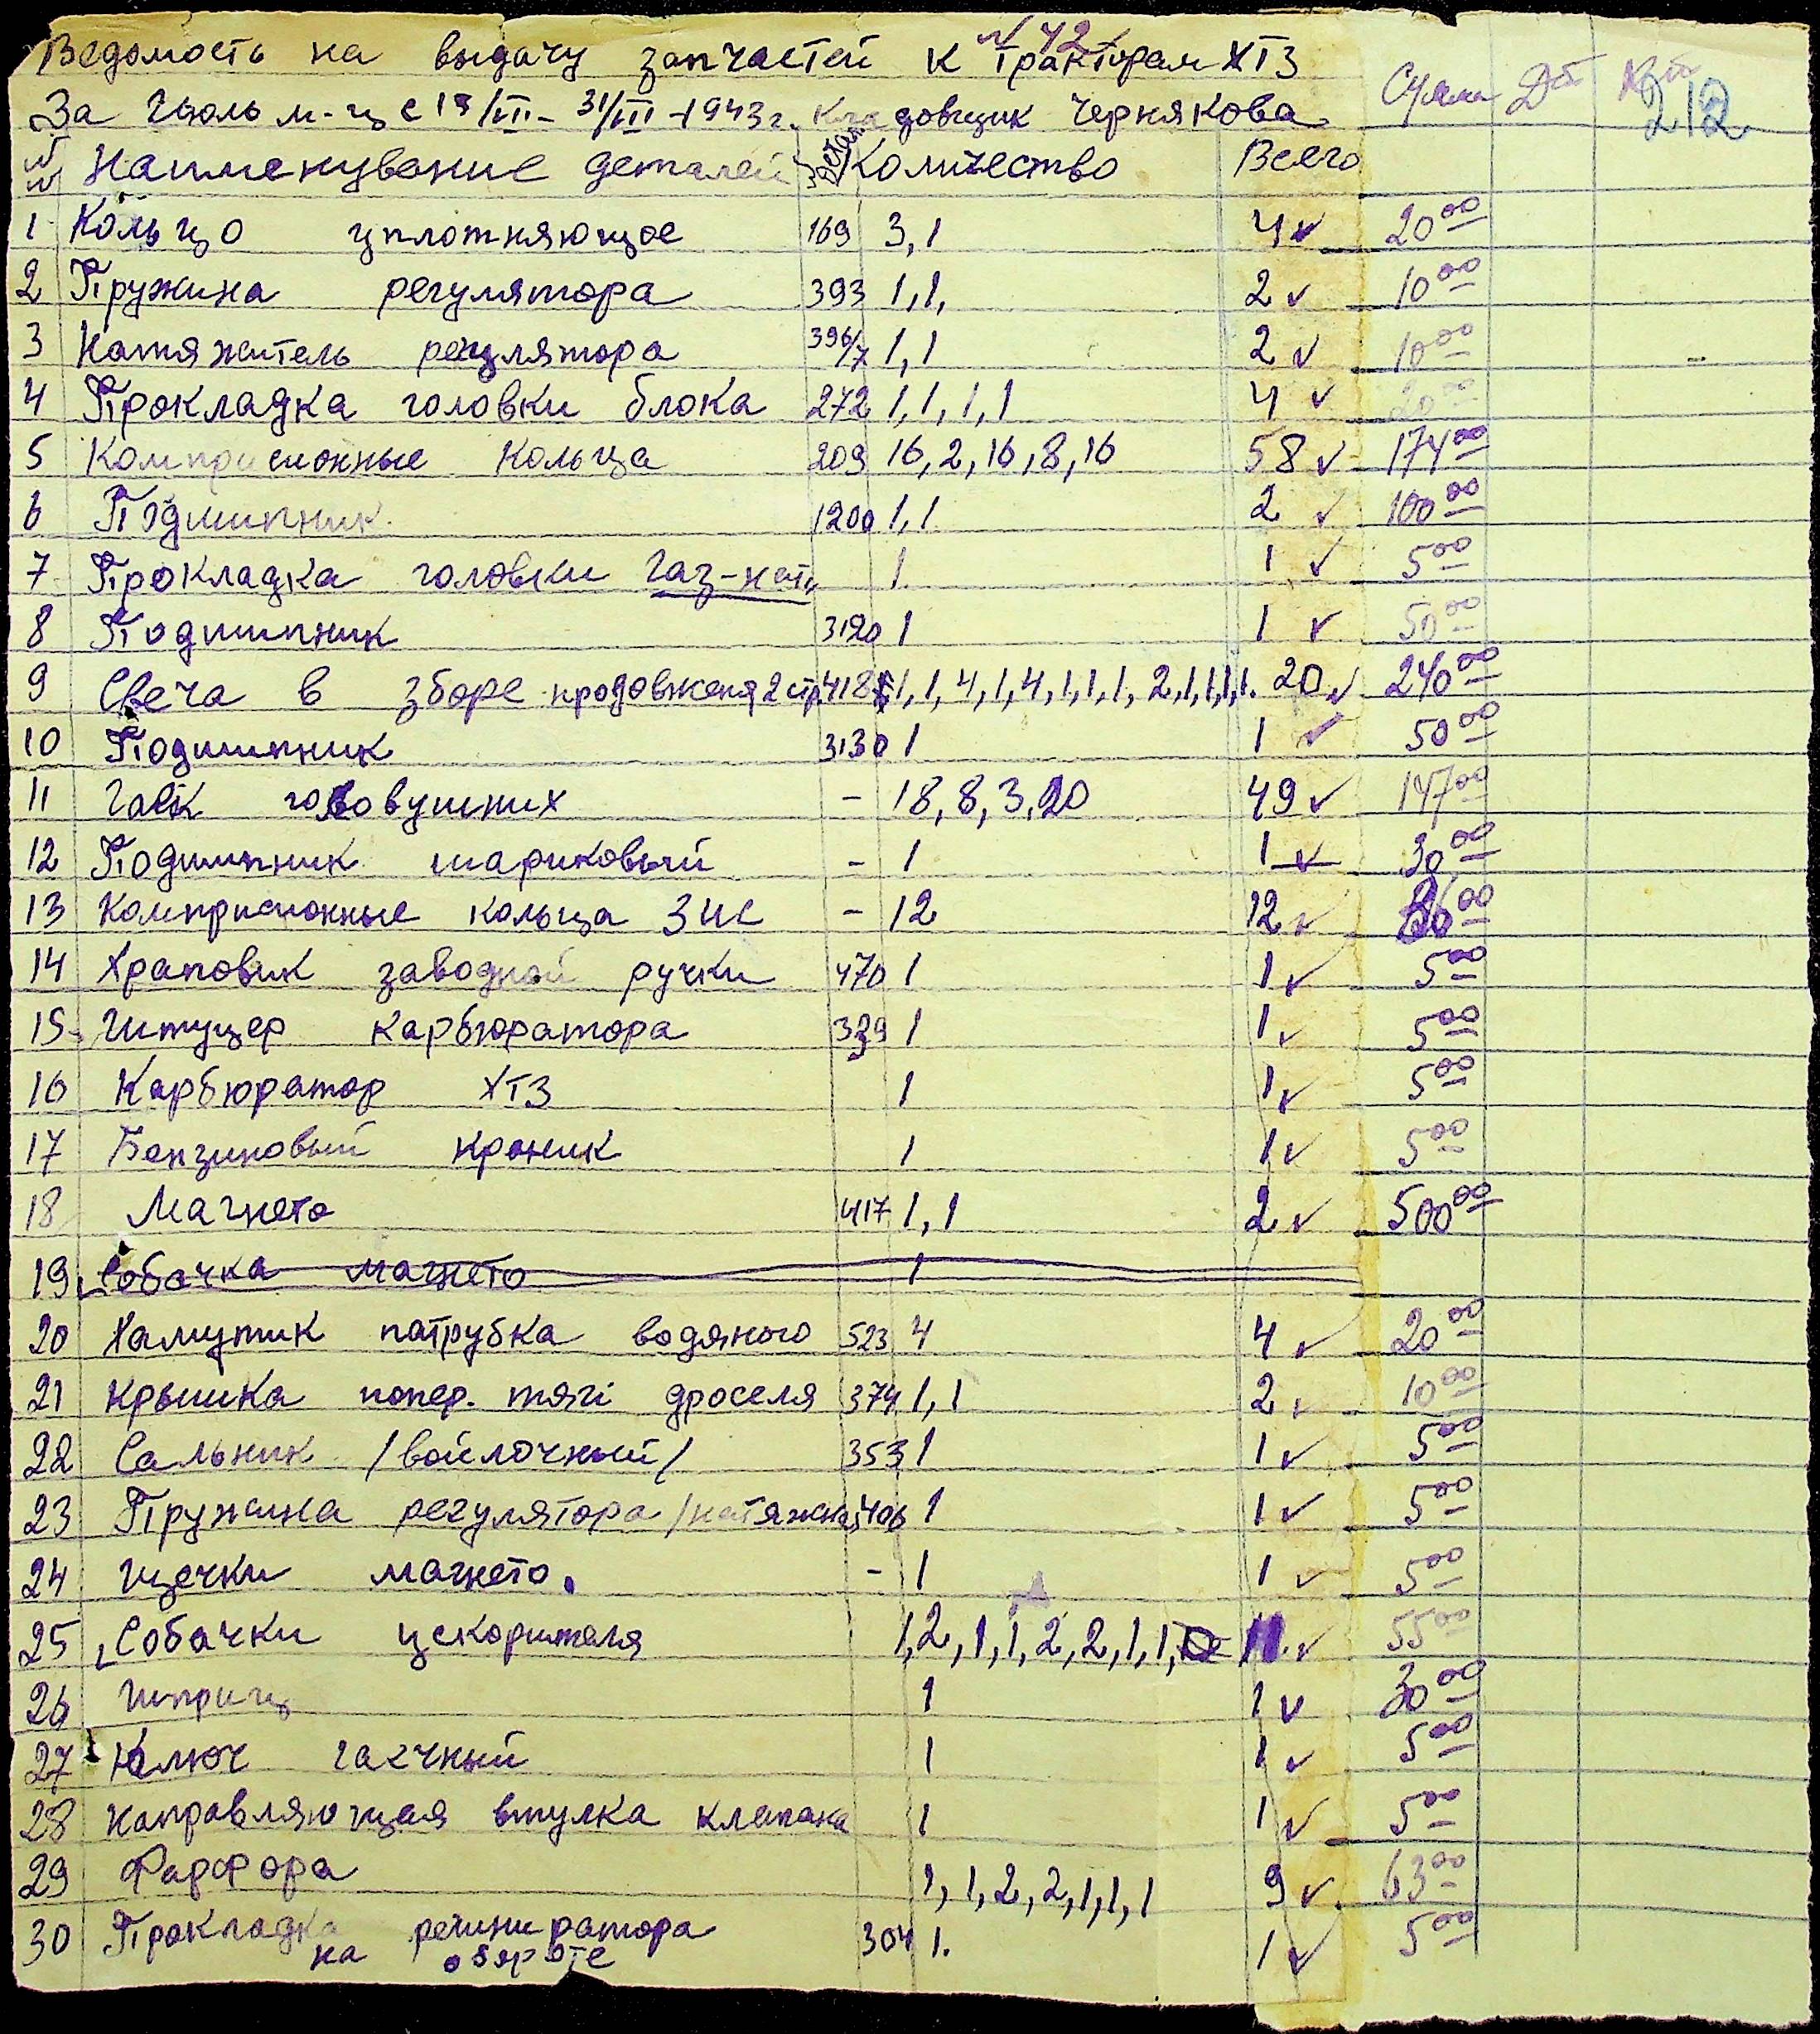 N 42
Ведомость на выдачу запчастей к тракторам ХТЗ
За Июль м-ц с 19/VII - 31/VII - 1943 г. Кладовщик Чернякова Сумма Дт Кт 212
Наименувание деталей № Детал Количество Всего
1 Кольцо уплотняющое 169 3,1 4 v 20 00
2 Пружина регулятора 393 1,1, 2 v 10 00
3 Натяжитель регулятора 396/7 1,1 2 v 10 00
4 Прокладка головки блока 272 1,1,1,1 4 v 20 00
5 Комприсионные Кольца 209 16,2,16,8,16 58 v 174 00
6 Подшипник 1200 1,1 2 v 100 00
7 Прокладка головки Газ-нати 1 1 v 5 00
8 Подшипник 3120 1 1 v 50 00
9 Свеча в зборе продовженя 2 стр. 418 1,1,4,1,4,1,1,1,2,1,1,1,1. 20 v 240 00
10 Подшипник 3130 1 1 v 50 00
11 Гаек головушних - 18,8,3,20 49 v 147 00
12 Подшипник шариковый - 1 1 v 30 00
13 Комприсионные кольца Зис - 12 12 v 36 00
14 Храповик заводной ручки 470 1 1 v 5 00
15 Штуцер Карбюратора 329 1 1 v 5 00
16 Карбюратор ХТЗ 1 1 v 5 00
17 Бензиновый краник 1 1 v 5 00
18 Магнето 417 1,1 2 v 500 00
19 Собачка магнето 1
20 Хамутик патрубка водяного 523 4 4 v 20 00
21 Крышка попер. тягі дроселя 374 1,1 2 v 10 00
22 Сальник /войлочный/ 353 1 1 v 5 00
23 Пружина регулятора /натяжная 406 1 1 v 5 00
24 Щечки магнето. - 1 1 v 5 00
25 Собачки ускорителя 1,2,1,1,2,2,1,1, 11. v 55 00
26 Шприц 1 1 v 30 00
27 Ключ гаечный 1 1 v 5 00
28 Направляющая втулка клапана 1 1 v 5 00
29 Фарфора 1,1,2,2,1,1,1 9 v 63 00
30 Прокладка регинератора 304 1. 1 v 5 00
на обяроте